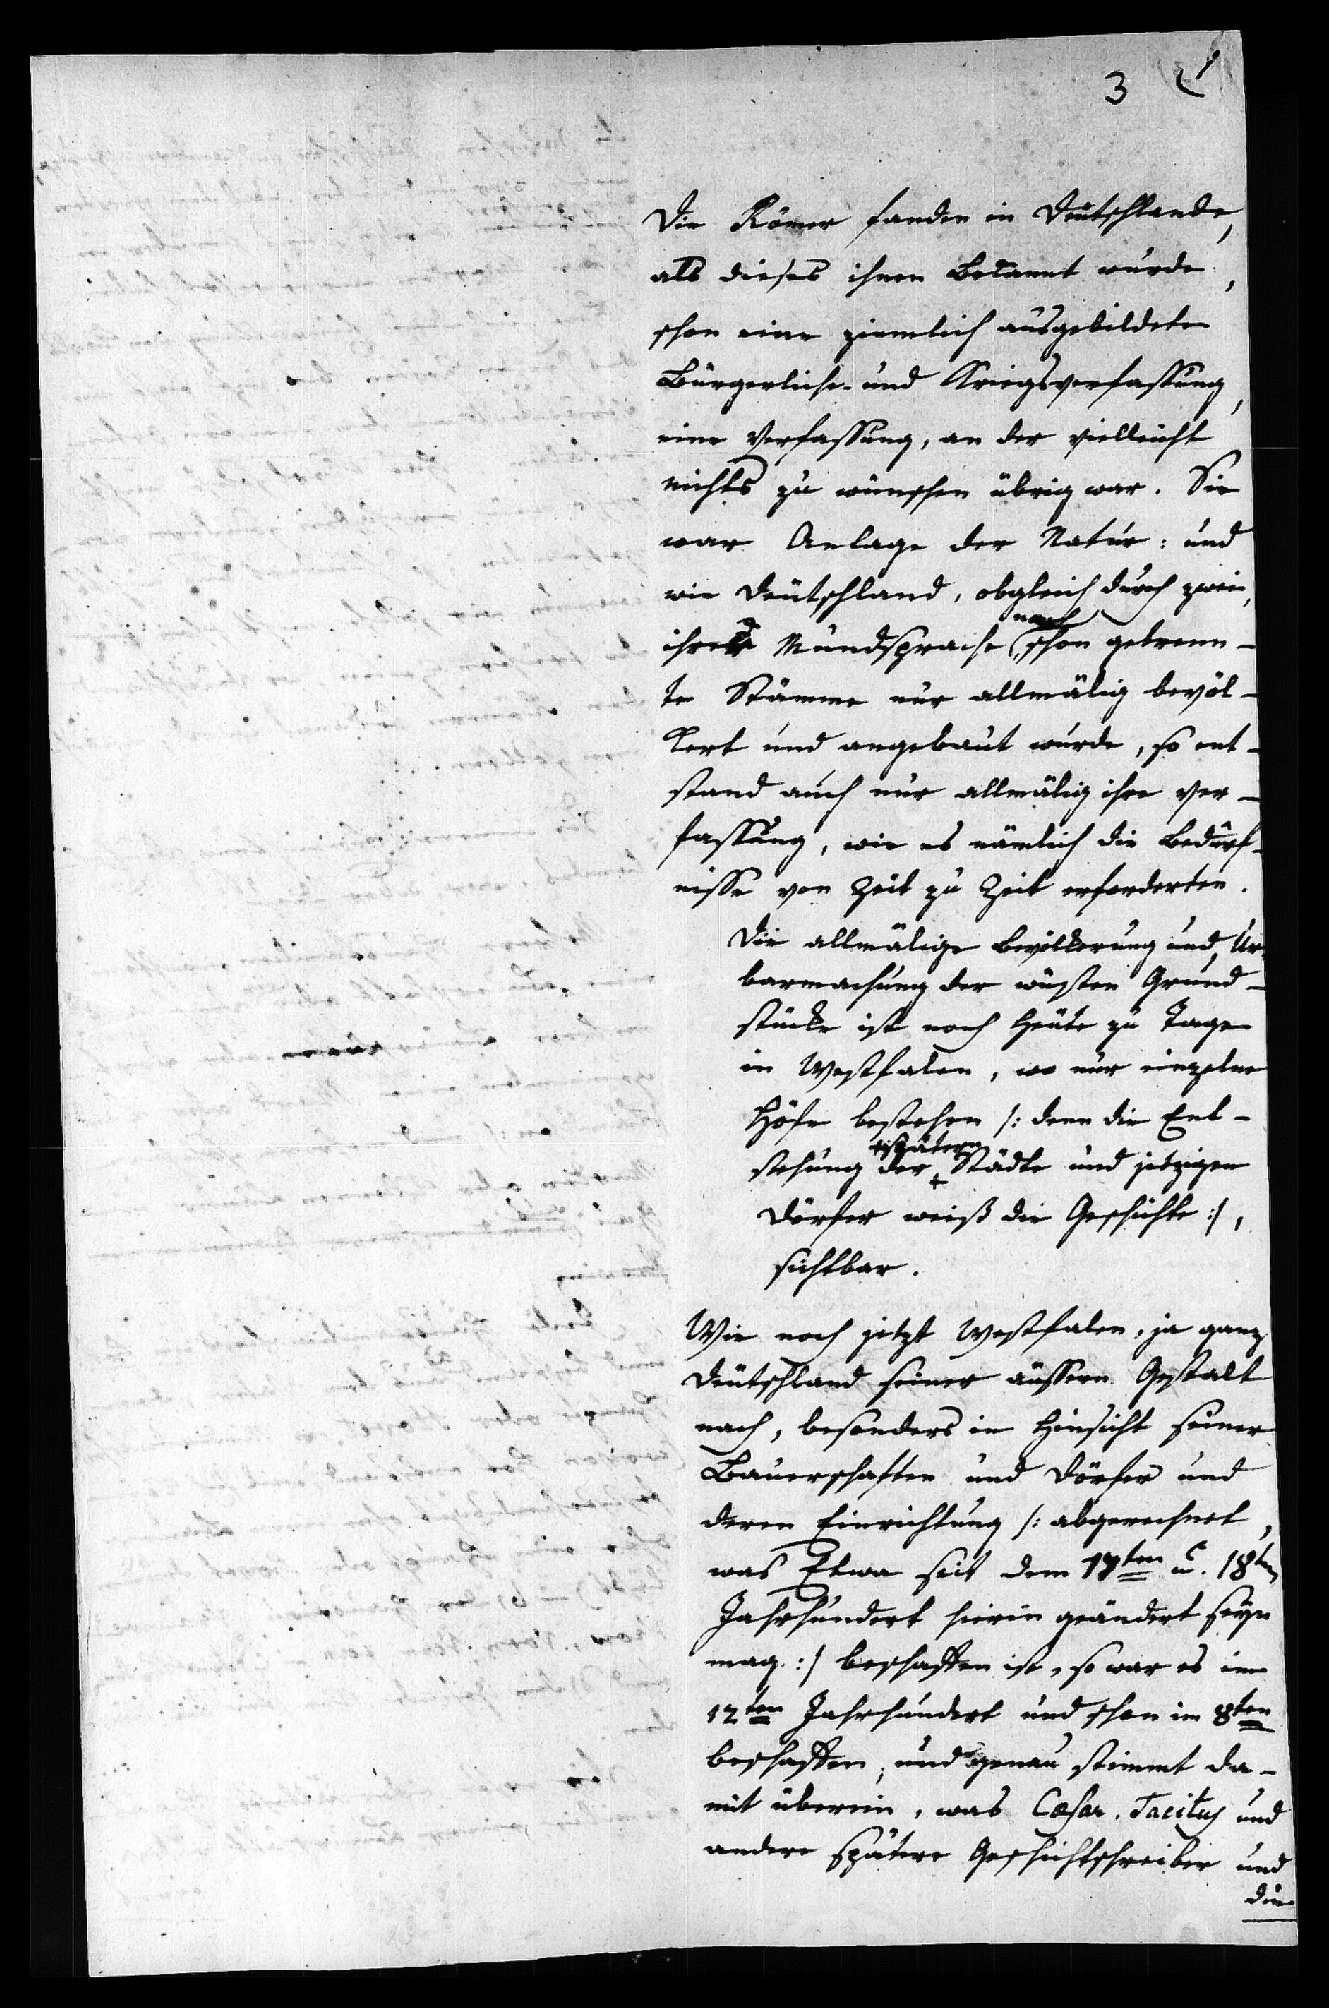 3
1
Die Römer fanden in Deutschlande,
als dieses ihnen bekannt wurde,
schon eine ziemlich ausgebildete
Bürgerliche- und Kriegsverfassung,
eine Verfassung, an der vielleicht
nichts zu wünschen übrig war. Sie
war Anlage der Natur: und
wie Deutschland, obgleich durch zwei,
nach
ihrer Mundsprache schon getrenn-
te Stämme nur allmälig bevöl-
kert und angebaut wurde, so ent-
stand auch nur allmälig ihre Ver-
fassung, wie es nämlich die Bedürf-
nisse von Zeit zu Zeit erforderten.
Die allmälige Bevölkerung und Ur-
barmachung der wüsten Grund-
stücke ist noch heute zu Tage
in Westfalen, wo nur einzelne
Höfe bestehen /: denn die Ent-
+spätern
stehung der + Städte und jetzigen
Dörfer weiß die Geschichte :/,
sichtbar.
Wie noch jetzt Westfalen, ja ganz
Deutschland seiner äussern Gestalt
nach, besonders in Hinsicht seiner
Bauerschaften und Dörfer und
deren Einrichtung /: abgerechnet,
was Etwa seit dem 17ten u. 18ten
Jahrhundert hierin geändert seyn
mag :/ beschaffen ist, so war es im
12ten Jahrhundert und schon im 8ten
beschaffen; und genau stimmt da-
mit überein, was Cæsar, Tacitus und
andere spätere Geschichtschreiber und
die